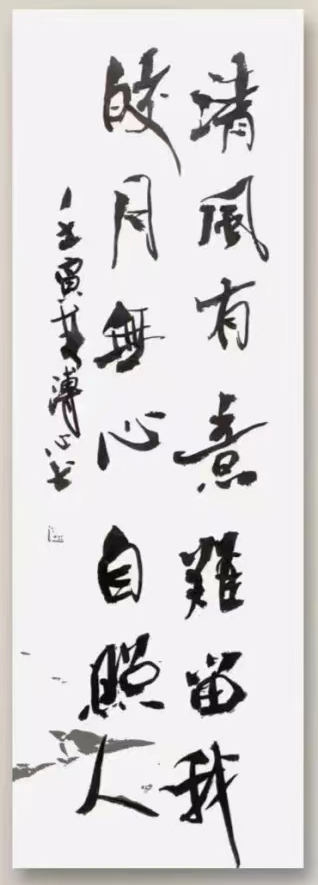 清風有意難留我
皎月無心自照人
壬寅 溥心书